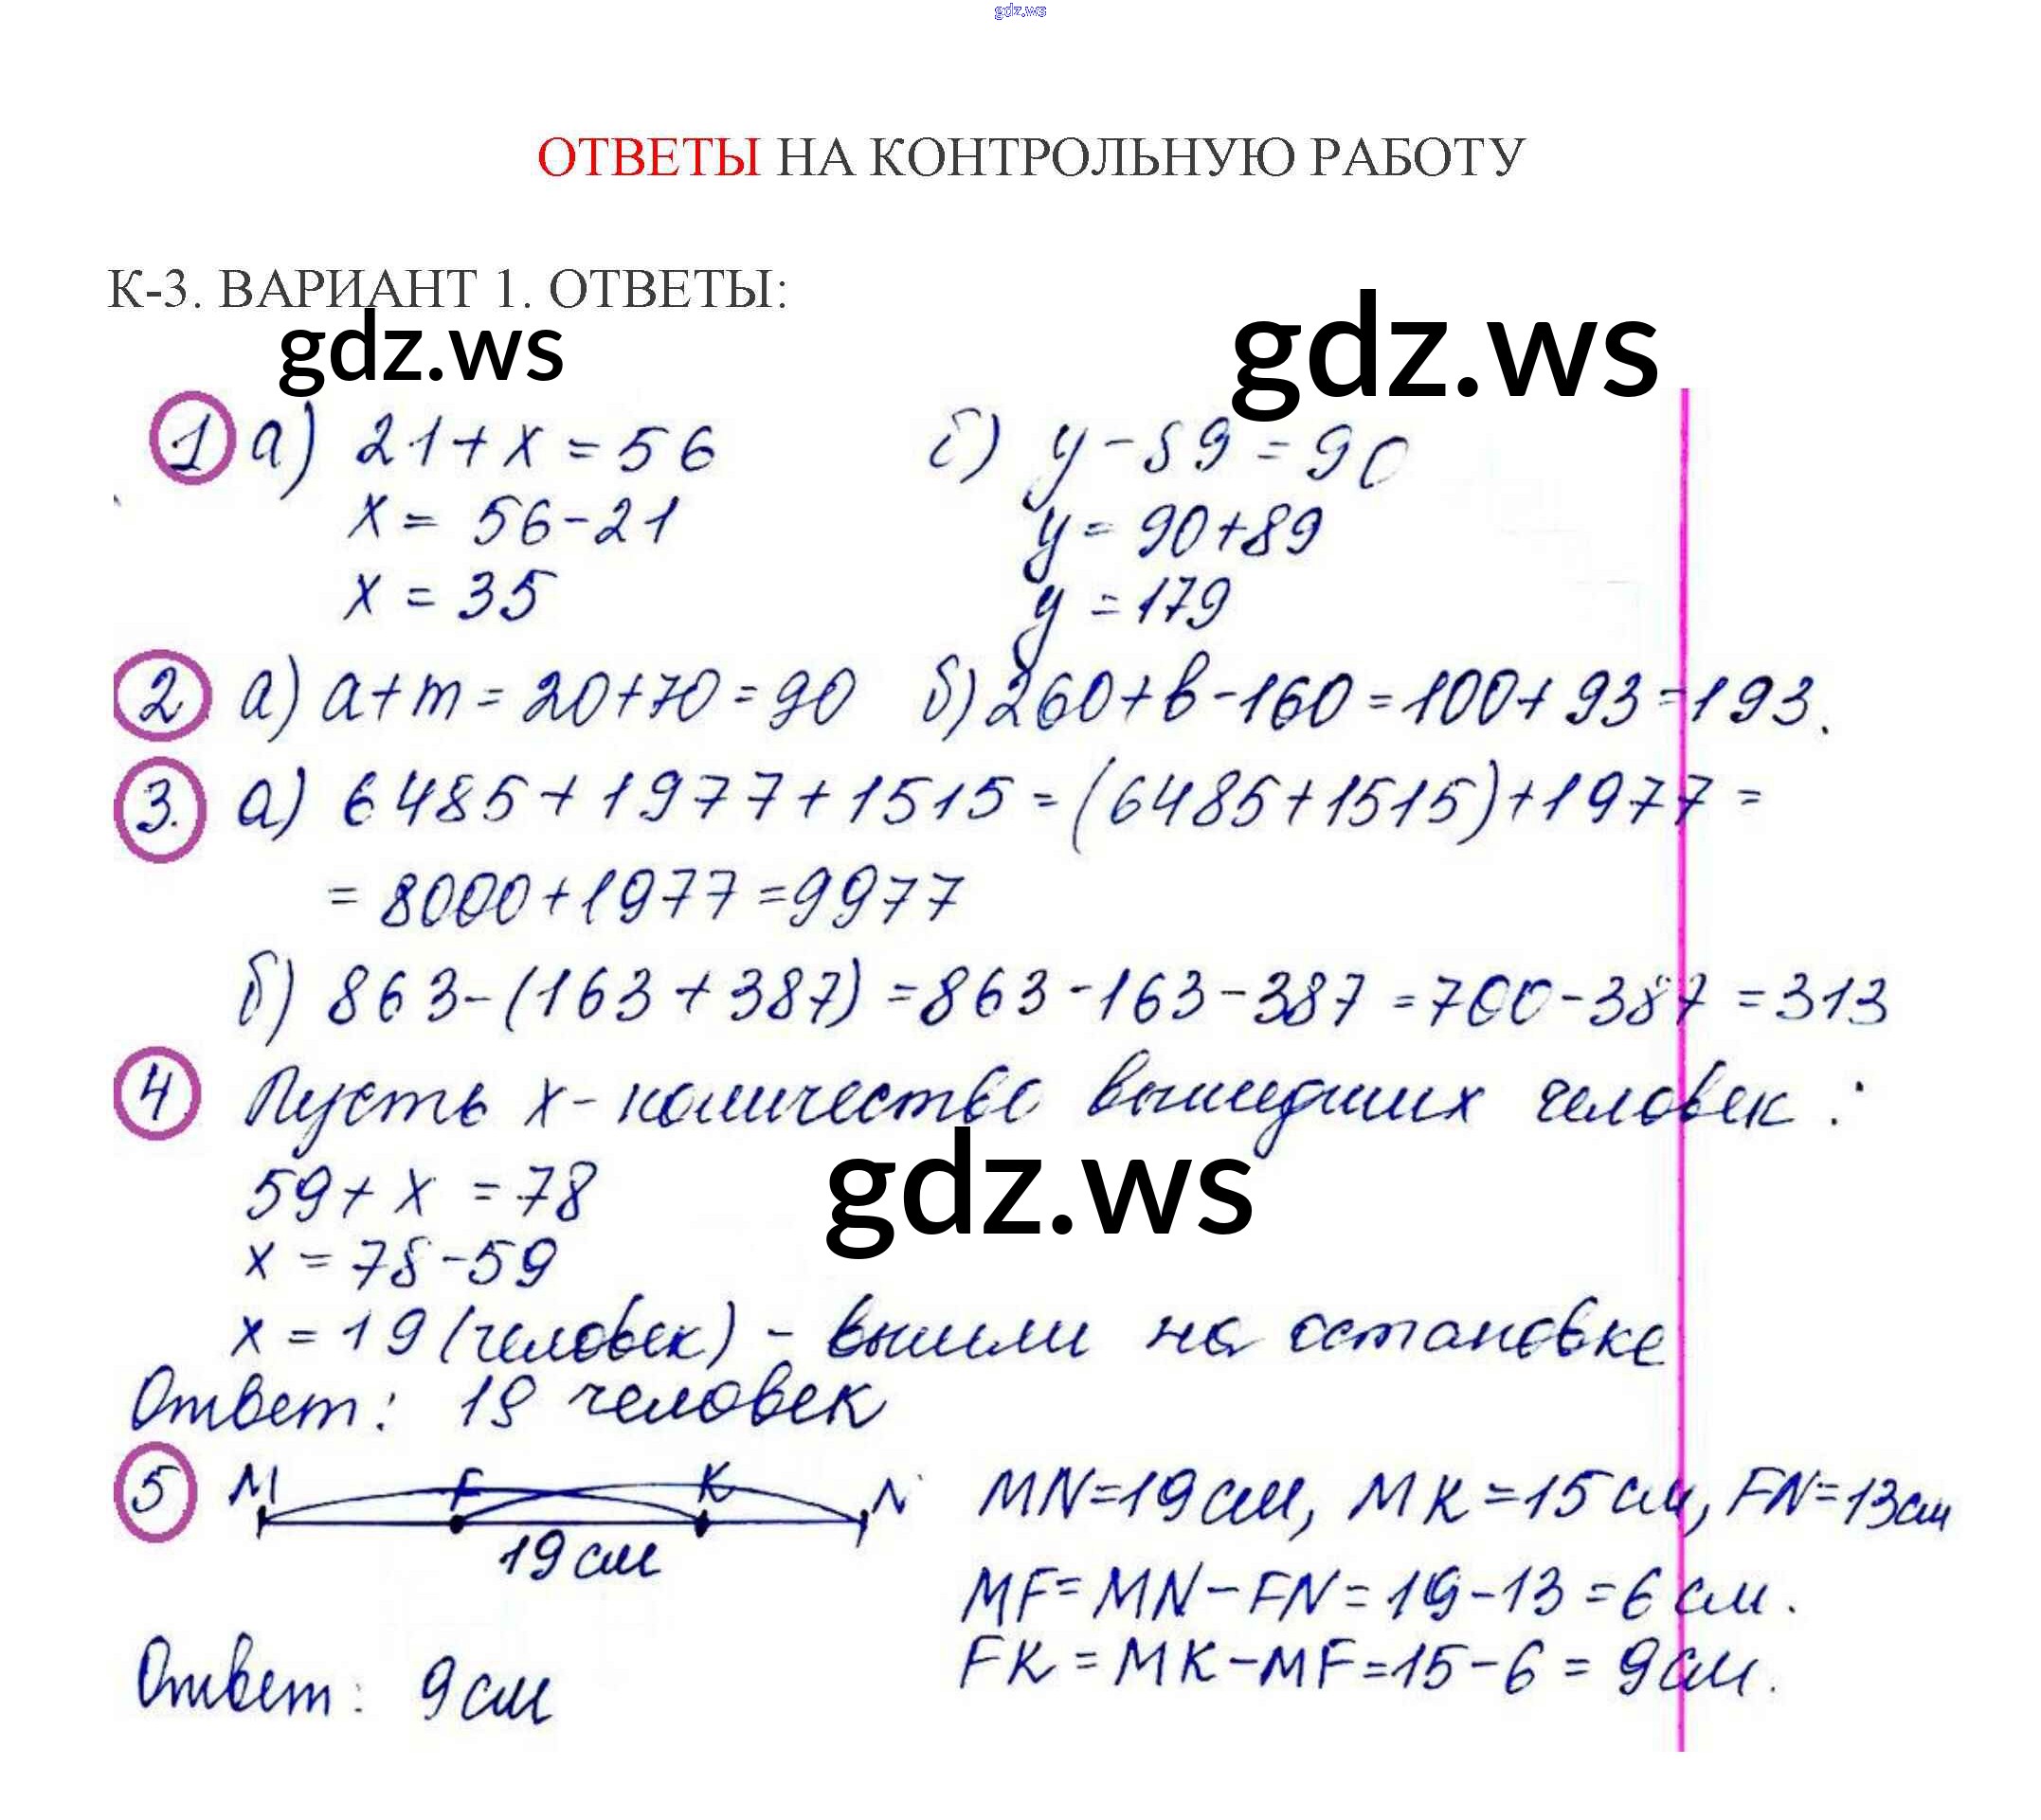 gdz.ws
ОТВЕТЫ НА КОНТРОЛЬНУЮ РАБОТУ
К-3. ВАРИАНТ 1. ОТВЕТЫ:
gdz.ws gdz.ws
1 а) 21+x=56 б) y-89=90
x= 56-21 y=90+89
x=35 y=179
2 а) a+m=20+70=90 б) 260+b-160=100+93=193.
3. а) 6485+1977+1515=(6485+1515)+1977=
=8000+1977=9977
б) 863-(163+387)=863-163-387=700-387=313
4 Пусть x-количество вышедших человек:
59+x=78
gdz.ws
x=78-59
x=19 (человек) - вышли на остановке
Ответ: 19 человек
5 M F K N MN=19см, MK=15см, FN=13см
19 см
MF=MN-FN=19-13=6см.
FK=MK-MF=15-6=9см.
Ответ: 9см